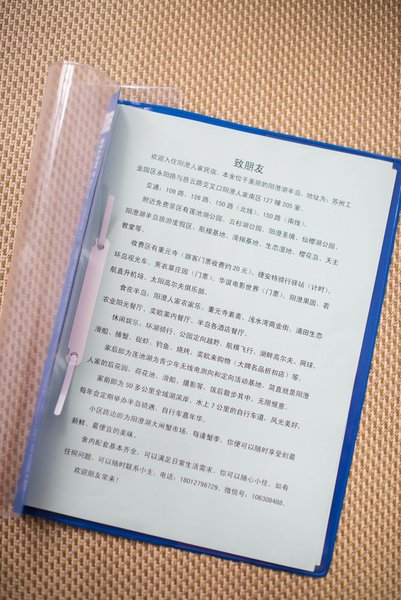 致朋友
欢迎入住阳澄人家民宿，本舍位于美丽的阳澄湖半岛，地址为：苏州工
业园区永阳路与慈云路交叉口阳澄人家南区127幢205室。
交通：109路，126路，150路（北线），150路（南线）。
附近免费景区有莲池湖公园、云杉湖公园、阳澄圣境、仙樱湖公园、
阳澄湖半岛旅游度假区、航模基地、滑翔基地、生态湿地、樱花岛、天主
教堂等。
收费区有重元寺（旅客门票收费约20元）、捷安特骑行驿站（计时）、
环岛观光车、黑衣草庄园（门票）、华谊电影世界（门票）、阳澄果园、若
航直升机场、太阳高尔夫俱乐部。
食在半岛：阳澄人家农家乐、重元寺素斋、浅水湾商业街、浦田生态
农业阳光餐厅、奕欧莱内餐厅、半岛各酒店餐厅。
休闲娱乐：环湖骑行、公园定向越野、航模飞行、湖畔高尔夫、网球、
滑船、捕蟹、捉虾、钓鱼、烧烤、奕欧来购物（大牌名品折扣店）等。
家后即为莲池湖为青少年无线电测向和定向活动基地，简直就是阳澄
人家的后花园，荷花池、滑船、摄影等，饭后散步其中，无限惬意。
家前即为50多公里全域湖滨岸，水上7公里的自行车道，风光美好。
每年会定期举办半岛骑遇、自行车嘉年华。
小区路边即为阳澄湖大闸蟹市场，每逢蟹季，你便可以随时享受到最
新鲜、最便宜的美味。
舍内配套基本齐全，可以满足日常生活需求，你可以随心小住，如有
任何问题，可以随时联系小主。电话：18012796729，微信号：106308488。
欢迎朋友常来！